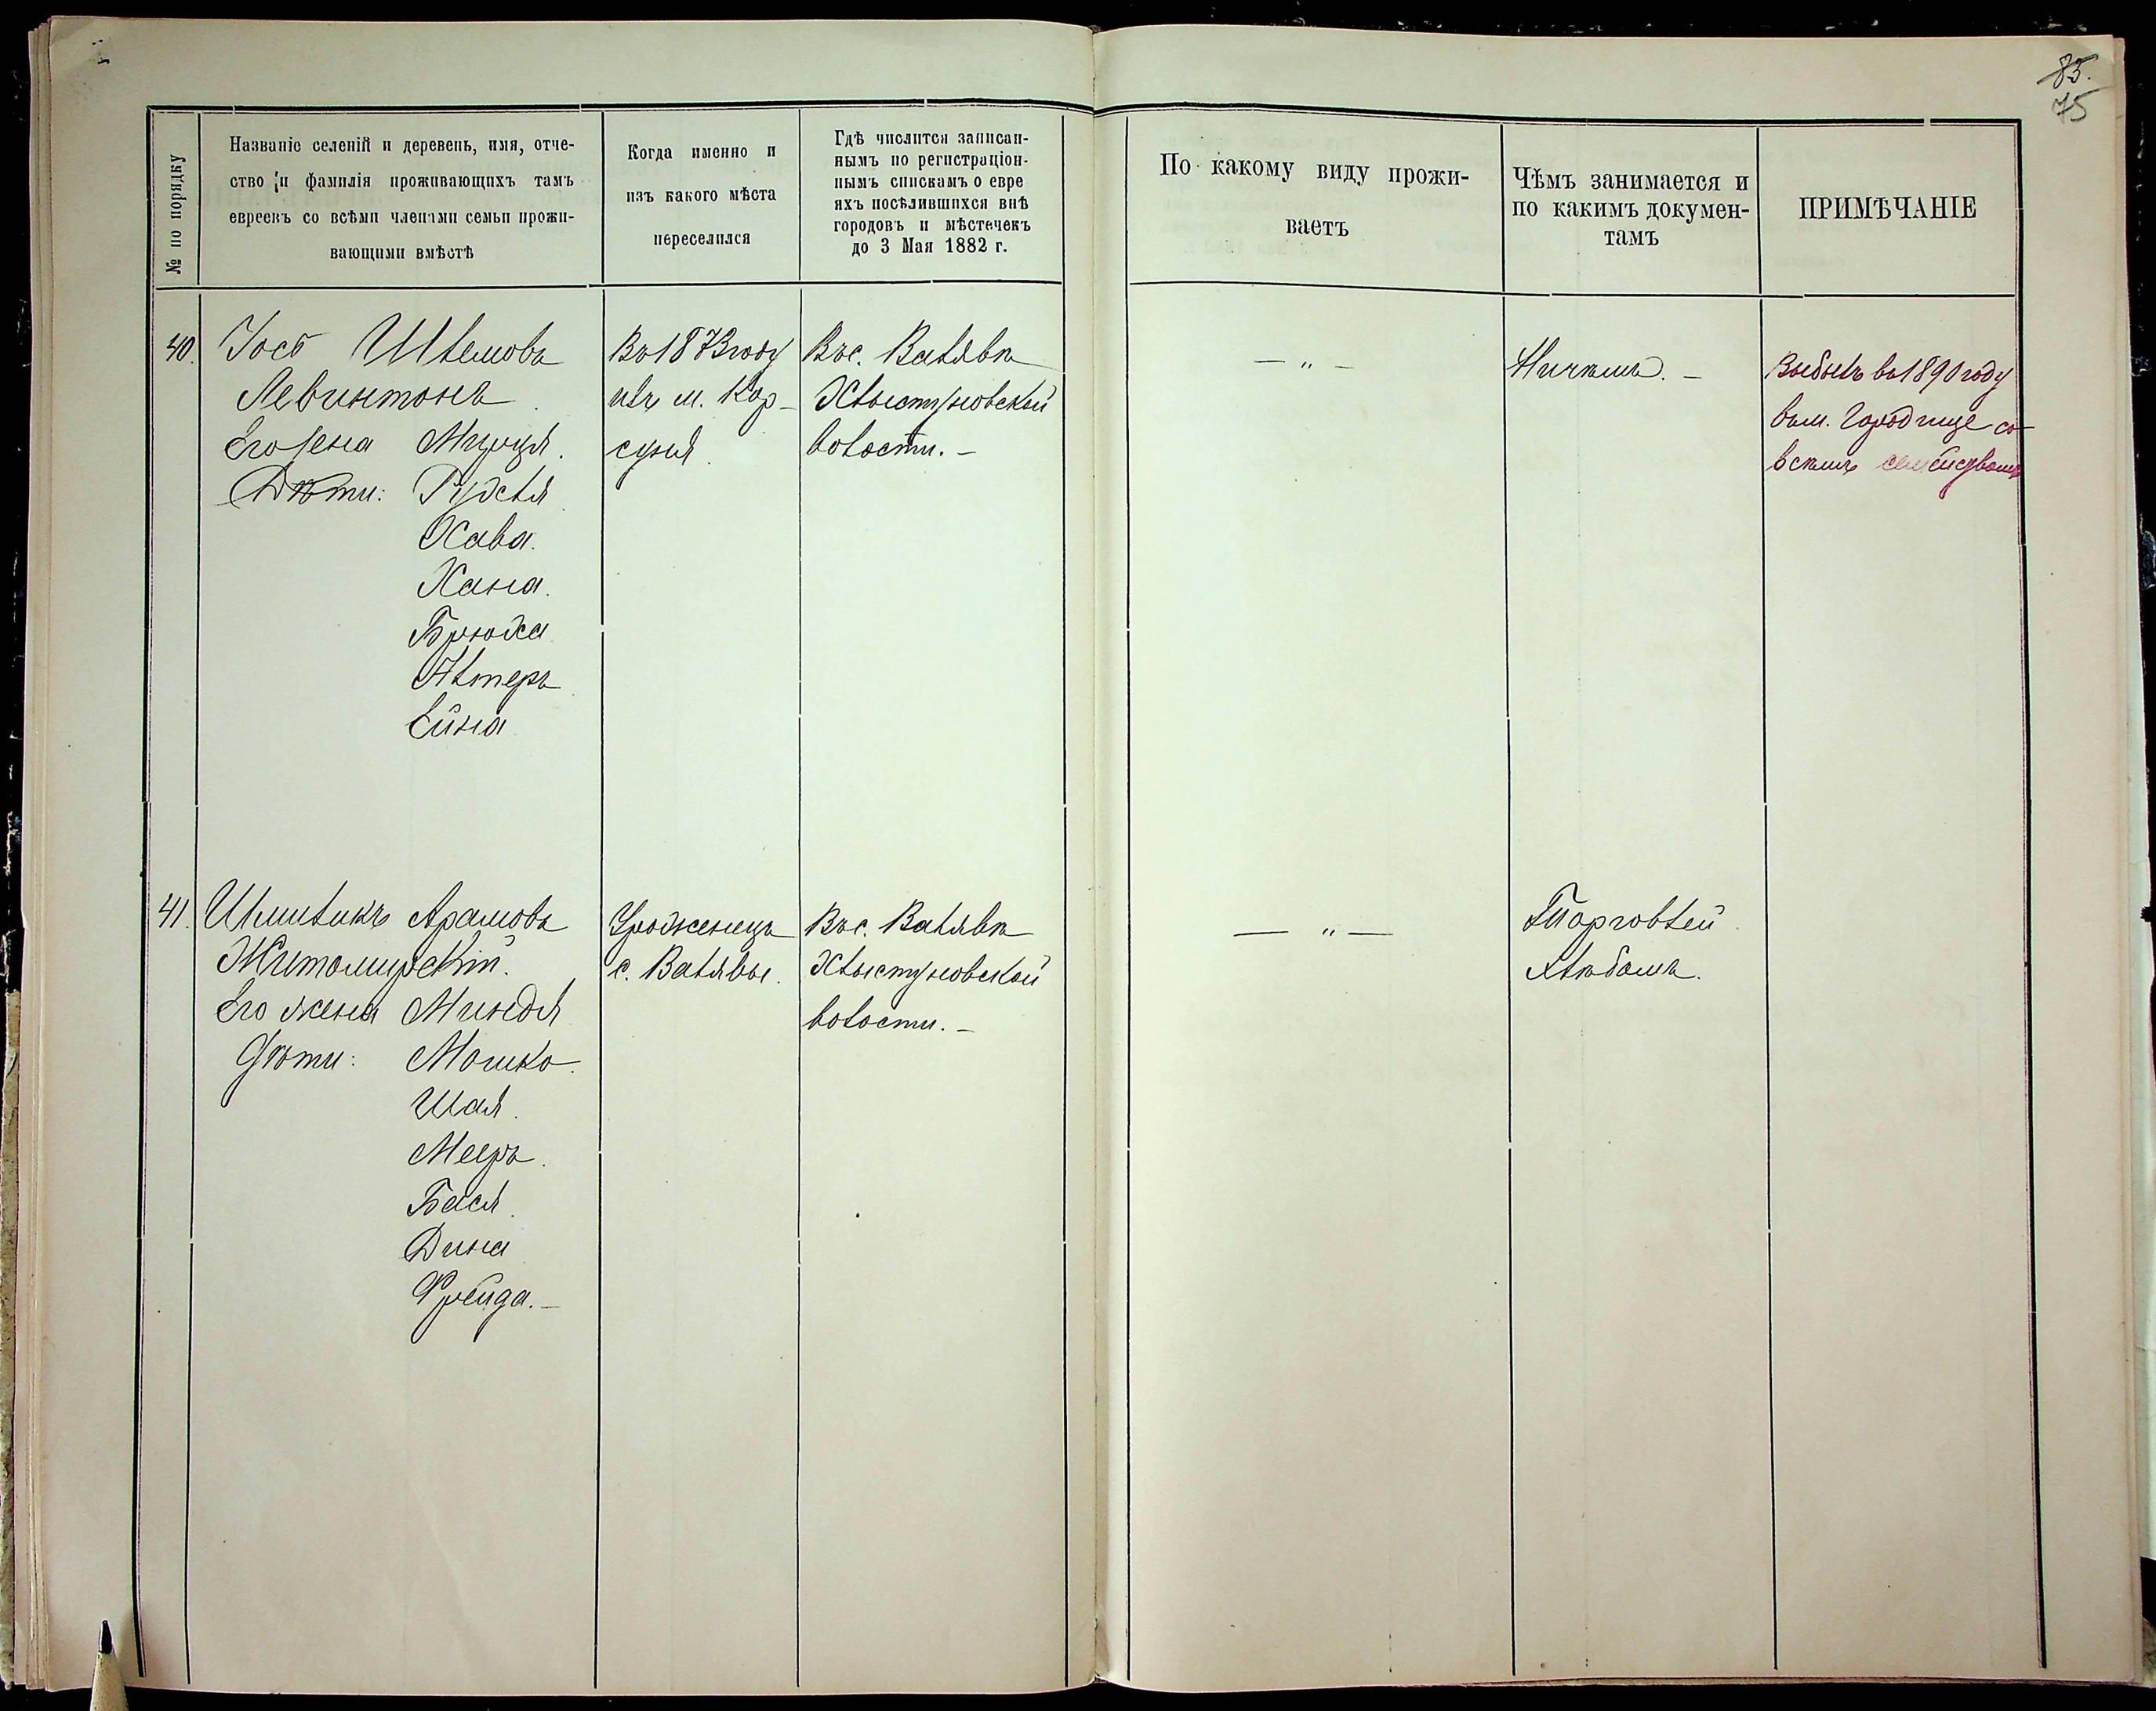 85.
75
№ по порядку
Названіе селеній и деревень, имя, отче-
ство и фамилія проживающихъ тамъ
евреевъ со всѣми членами семьи прожи-
вающими вмѣстѣ
Когда именно и
изъ какого мѣста
переселился
Гдѣ числится записан-
нымъ по регистраціон-
нымъ спискамъ о евре
яхъ посѣлившихся внѣ
городовъ и мѣстечекъ
до 3 Мая 1882 г.
По какому виду прожи-
ваетъ
Чѣмъ занимается и
по какимъ докумен-
тамъ
ПРИМѢЧАНІЕ
40. Іось Шлемовъ
Левинтонъ
Его жена
Дѣти: Рудля
Хава.
Хана.
Брюха
Ейна
Въ 1873 году
изъ м. Кор-
суня
Въ с. Валявкѣ
Хлыстуновской
волости. –
– „ –
Ничѣмъ. –
Выбылъ въ 1890 году
въ м. Городище со
всѣмъ семействомъ
41. Шмиликъ Арамовъ
Житомирскій.
Его жена Миндля
Дѣти: Мошко.
Шая.
Мееръ.
Бася.
Дина
Фрейда. –
Уроженецъ
с. Валявы.
Въ с. Валявкѣ
Хлыстуновской
волости. –
– „ –
Торговлей
хлѣбомъ.